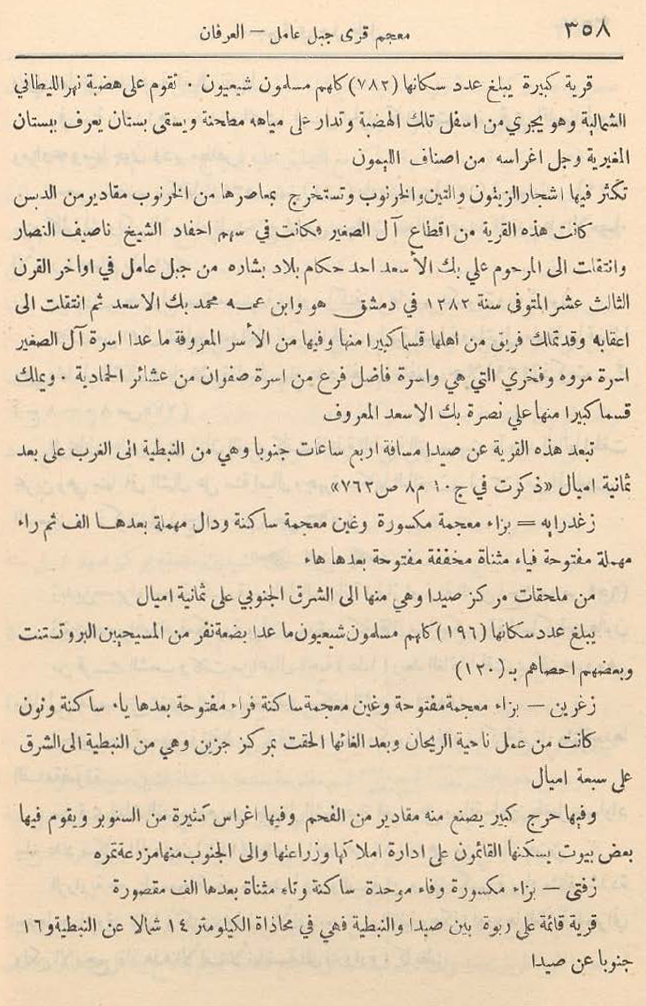 ٣٥٨
معجم قرى جبل عامل — العرفان
قرية كبيرة يبلغ عدد سكانها (٧٨٢) كلهم مسلمون شيعيون . تقوم على هضبة نهر الليطاني
الشمالية وهو يجري من اسفل تلك الهضبة وتدار على مياهه مطحنة ويسقى بستان يعرف ببستان
المغيرية وجل اغراسه من اصناف الليمون
تكثر فيها اشجار الزيتون والتين والخرنوب وتستخرج بمعاصرها من الخرنوب مقادير من الدبس
كانت هذه القرية من اقطاع آل الصغير فكانت في سهم احفاد الشيخ ناصيف النصار
وانتقلت الى المرحوم علي بك الأسعد احد حكام بلاد بشاره من جبل عامل في اواخر القرن
الثالث عشر المتوفى سنة ١٢٨٢ في دمشق هو وابن عمه محمد بك الاسعد ثم انتقلت الى
اعقابه وقد تملك فريق من اهلها قسما كبيرا منها وفيها من الأسر المعروفة ما عدا اسرة آل الصغير
اسرة مروه وفخري التي هي واسرة فاضل فرع من اسرة صفوان من عشائر الحمادية . ويملك
قسما كبيرا منها علي نصرة بك الاسعد المعروف
تبعد هذه القرية عن صيدا مسافة اربع ساعات جنوبا وهي من النبطية الى الغرب على بعد
ثمانية اميال «ذكرت في ج ١٠ م ٨ ص ٧٦٢»
زغدرايه = بزاء معجمة مكسورة وغين معجمة ساكنة ودال مهملة بعدها الف ثم راء
مهملة مفتوحة فياء مثناة مخففة مفتوحة بعدها هاء
من ملحقات مركز صيدا وهي منها الى الشرق الجنوبي على ثمانية اميال
يبلغ عدد سكانها (١٩٦) كلهم مسلمون شيعيون ما عدا بضعة نفر من المسيحيين البروتستنت
وبعضهم احصاهم بـ (١٢٠)
زغرين — بزاء معجمة مفتوحة وغين معجمة ساكنة فراء مفتوحة بعدها ياء ساكنة ونون
كانت من عمل ناحية الريحان وبعد الغائها الحقت بمركز جزين وهي من النبطية الى الشرق
على سبعة اميال
وفيها حرج كبير يصنع منه مقادير من الفحم وفيها اغراس كثيرة من السنوبر ويقوم فيها
بعض بيوت يسكنها القائمون على ادارة املاكها وزراعتها والى الجنوب منها مزرعة تمره
زفتى — بزاء مكسورة وفاء موحدة ساكنة وتاء مثناة بعدها الف مقصورة
قرية قائمة على ربوة بين صيدا والنبطية فهي في محاذاة الكيلومتر ١٤ شمالا عن النبطية و ١٦
جنوبا عن صيدا